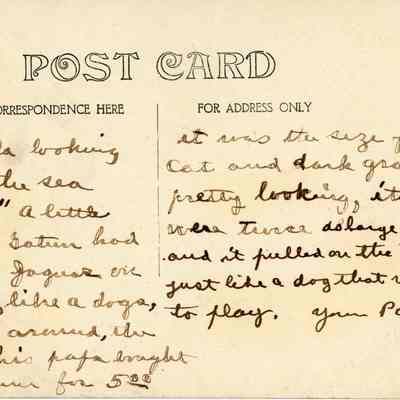 POST CARD
ORRESPONDENCE HERE
FOR ADDRESS ONLY
looking
the sea
" A little
Gatun had
Jaguar on
like a dogs,
around, the
his papa bought
for 5.00
it was the size
Cat and dark gra
pretty looking, it
were twice as large
and it pulled on the
just like a dog that
to play. Your Pa